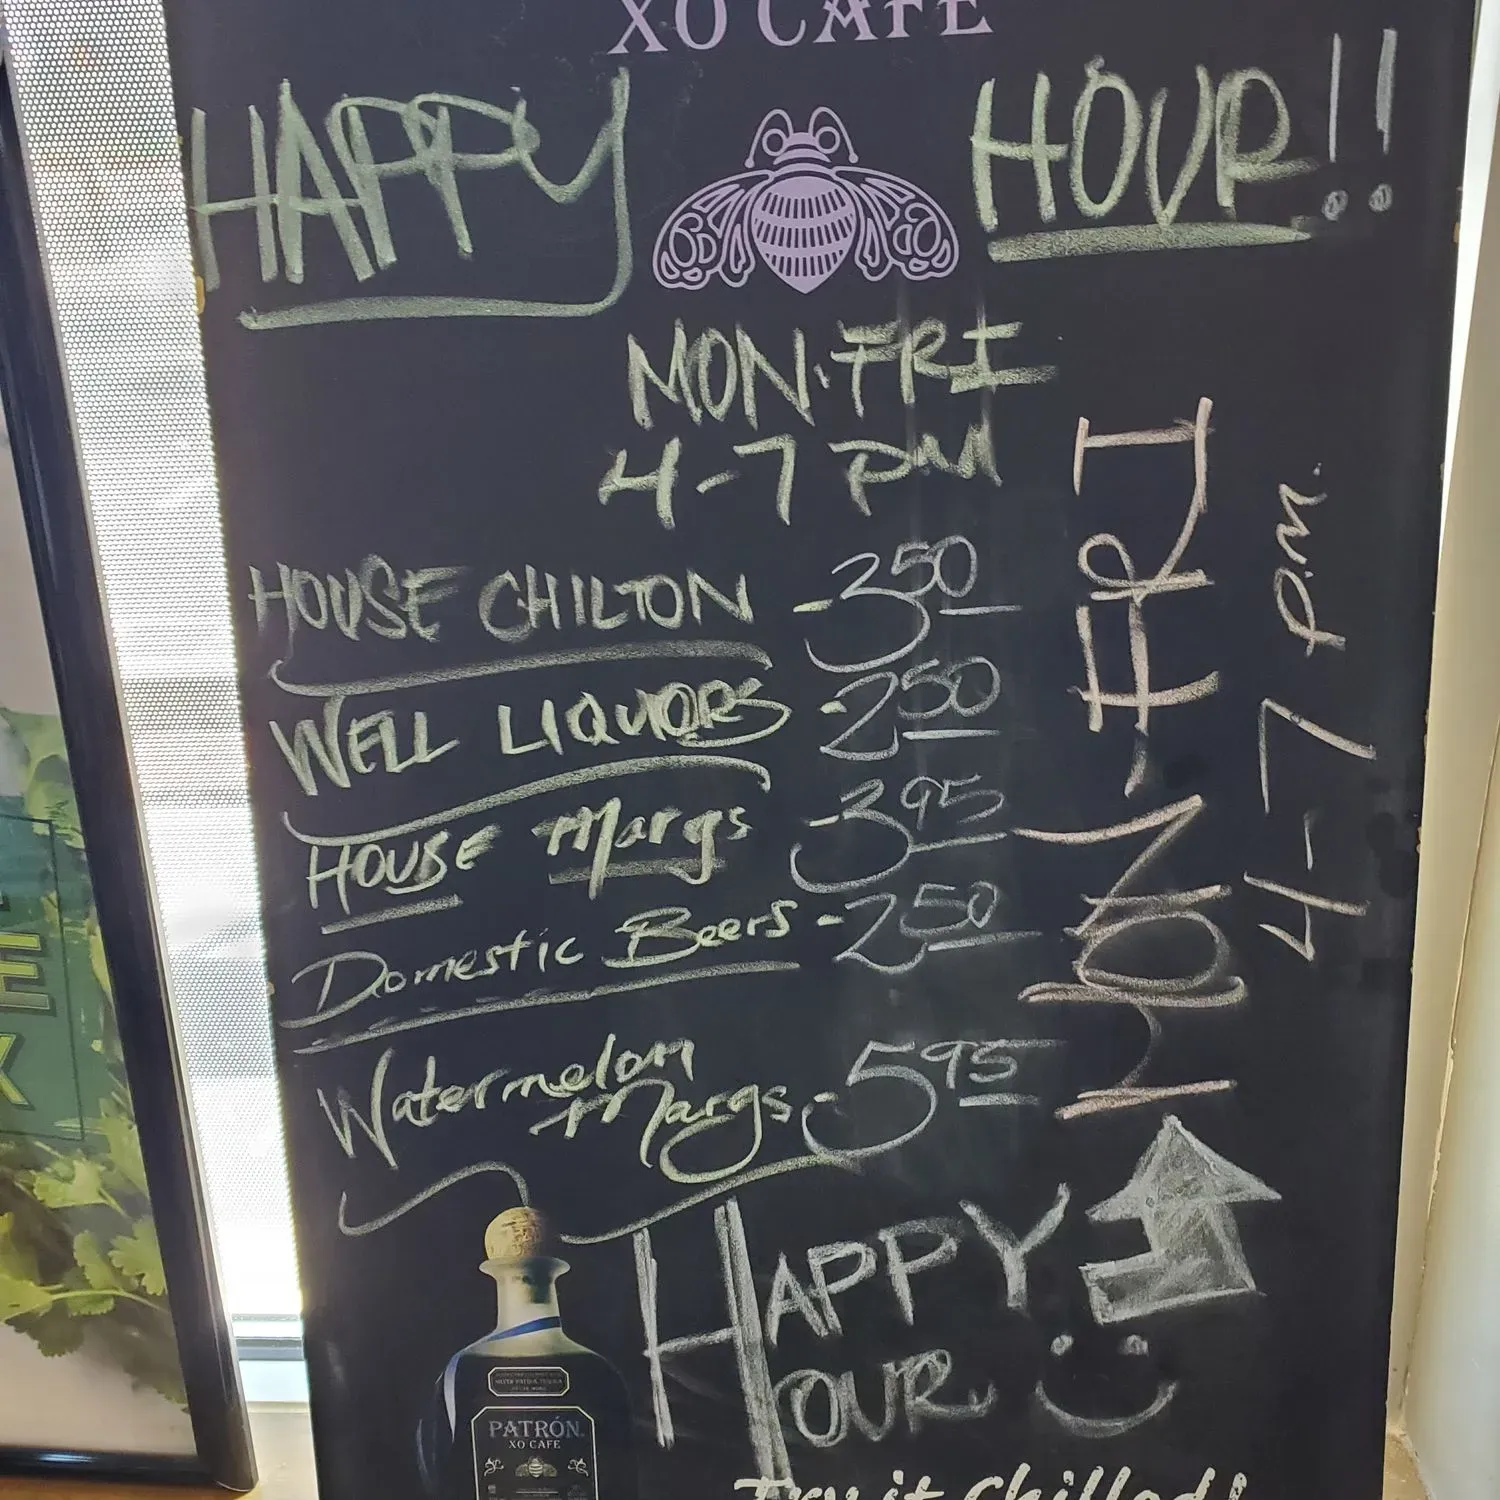 XO CAFE
HAPPY HOUR!!
MON-FRI
4-7 PM
HOUSE CHILTON - 3 50
WELL LIQUORS - 2 50
HOUSE Margs - 3 95
Domestic Beers - 2 50
Watermelon
Margs - 5 95
MON-FRI
4-7 P.M.
HAPPY
HOUR
PATRÓN
XO CAFE
Try it Chilled!